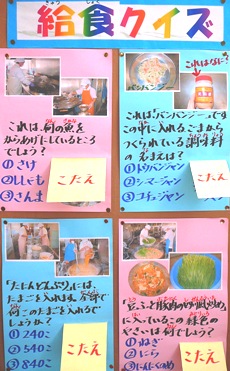 きゅう しょく
給食クイズ
これは、何の魚を
からあげにしているところ
でしょう?
①さけ
②ししゃも
③さんま
こたえ
バンバンジー
これはなに?
これは「バンバンジー」です
この中に入れるごまから
つくられている調味料
の名まえは?
①トウバンジャン
②シーマージャン
③コチュジャン
こたえ
「たにんどんぶり」には、
たまごを入れます。全部で
何こたまごを入れるで
しょうか?
①240こ
②540こ
③840こ
こたえ
に入っているこの緑色の
やさいは何でしょう?
①ねぎ
②にら
③にんにくのめ
こたえ